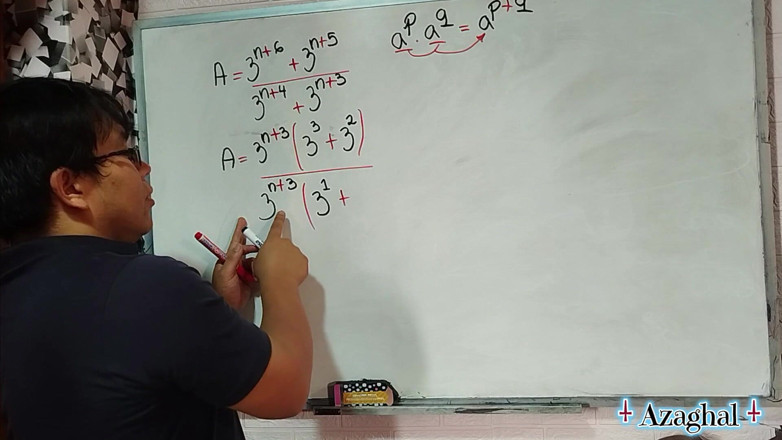 A = 3^{n+6} + 3^{n+5}
3^{n+4} + 3^{n+3}
A = 3^{n+3} (3^3 + 3^2)
3^{n+3} (3^1 +
a^p . a^q = a^{p+q}
Azaghal